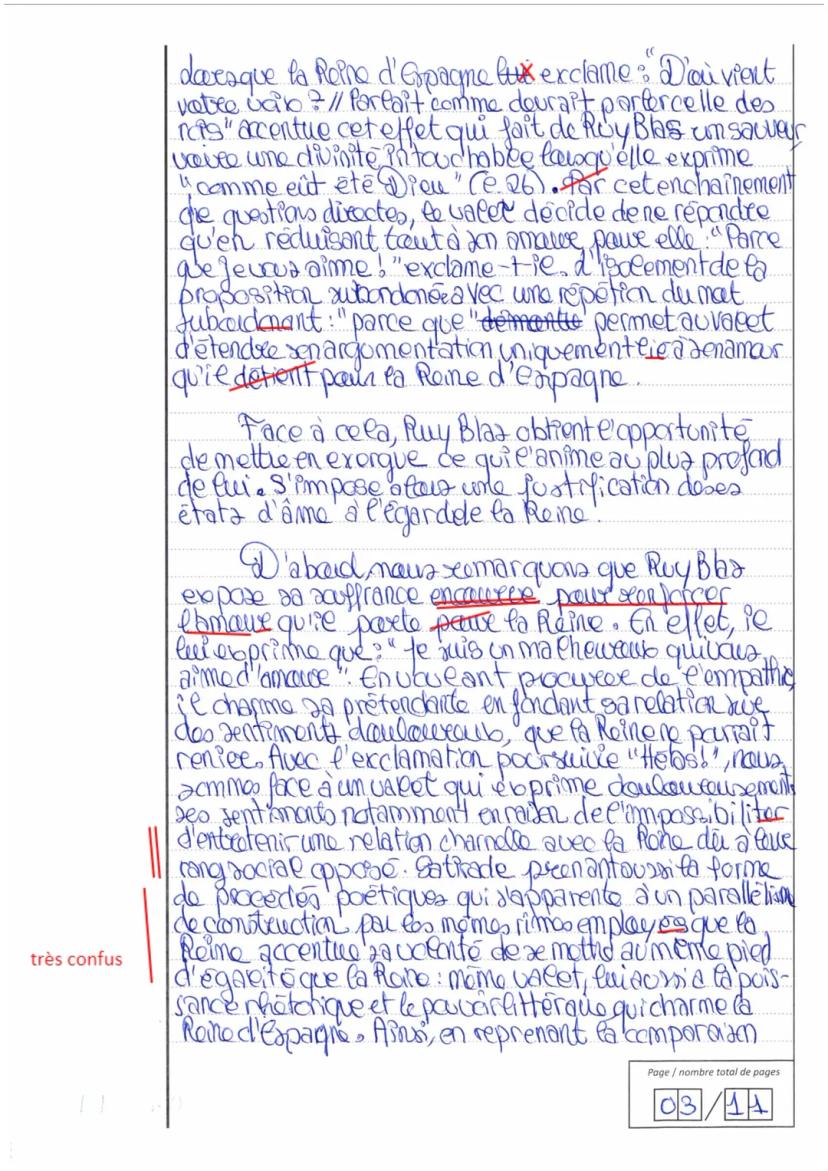 lorsque la Reine d'Espagne lui exclame : "D'où vient
votre voix ? // Parlait comme devrait parler celle des
rois" accentue cet effet qui fait de Ruy Blas un sauveur
voire une divinité intouchable lorsqu'elle exprime
"comme eût été Dieu" (l. 26). Par cet enchainement
de questions directes, le valet décide de ne répondre
qu'en réduisant tout à son amour pour elle : "Parce
que je vous aime !" exclame-t-il. L'isolement de la
proposition subordonée avec une répétion du mot
subordonant : "parce que" démontre permet au valet
d'étendre son argomentation uniquement lié à son amour
qu'il détient pour la Reine d'Espagne.
Face à cela, Ruy Blas obtient l'opportunité
de mettre en exorgue ce qui l'anime au plus profond
de lui. S'impose alors une justification de ses
états d'âme à l'égard de la Reine.
D'abord, nous remarquons que Ruy Blas
expose sa souffrance encourue pour renforcer
l'amour qu'il porte pour la Reine. En effet, il
lui exprime que : "Je suis un malheureux qui vous
aime d'amour". En voulant procurer de l'empathie,
il charme sa prétendante en fondant sa relation sur
des sentiments douloureux, que la Reine ne parrait
renier. Avec l'exclamation poursuivie "Hélas !", nous
sommes face à un valet qui exprime douloureusement
ses sentiments notamment en raison de l'impossibiliter
d'entretenir une relation charnelle avec la Reine dû à leur
rang social opposé. Sa tirade prenant aussi la forme
de procédés poétiques qui s'apparente à un parallélism
de construction par les mêmes rimes employés que la
Reine accentue sa volonté de se mettre au même pied
d'égalité que la Reine : même valet, lui aussi a la pois-
sance rhétorique et le pouvoir littérque qui charme la
Reine d'Espagne. Ainsi, en reprenant la comparaison
très confus
Page / nombre total de pages
03 / 11